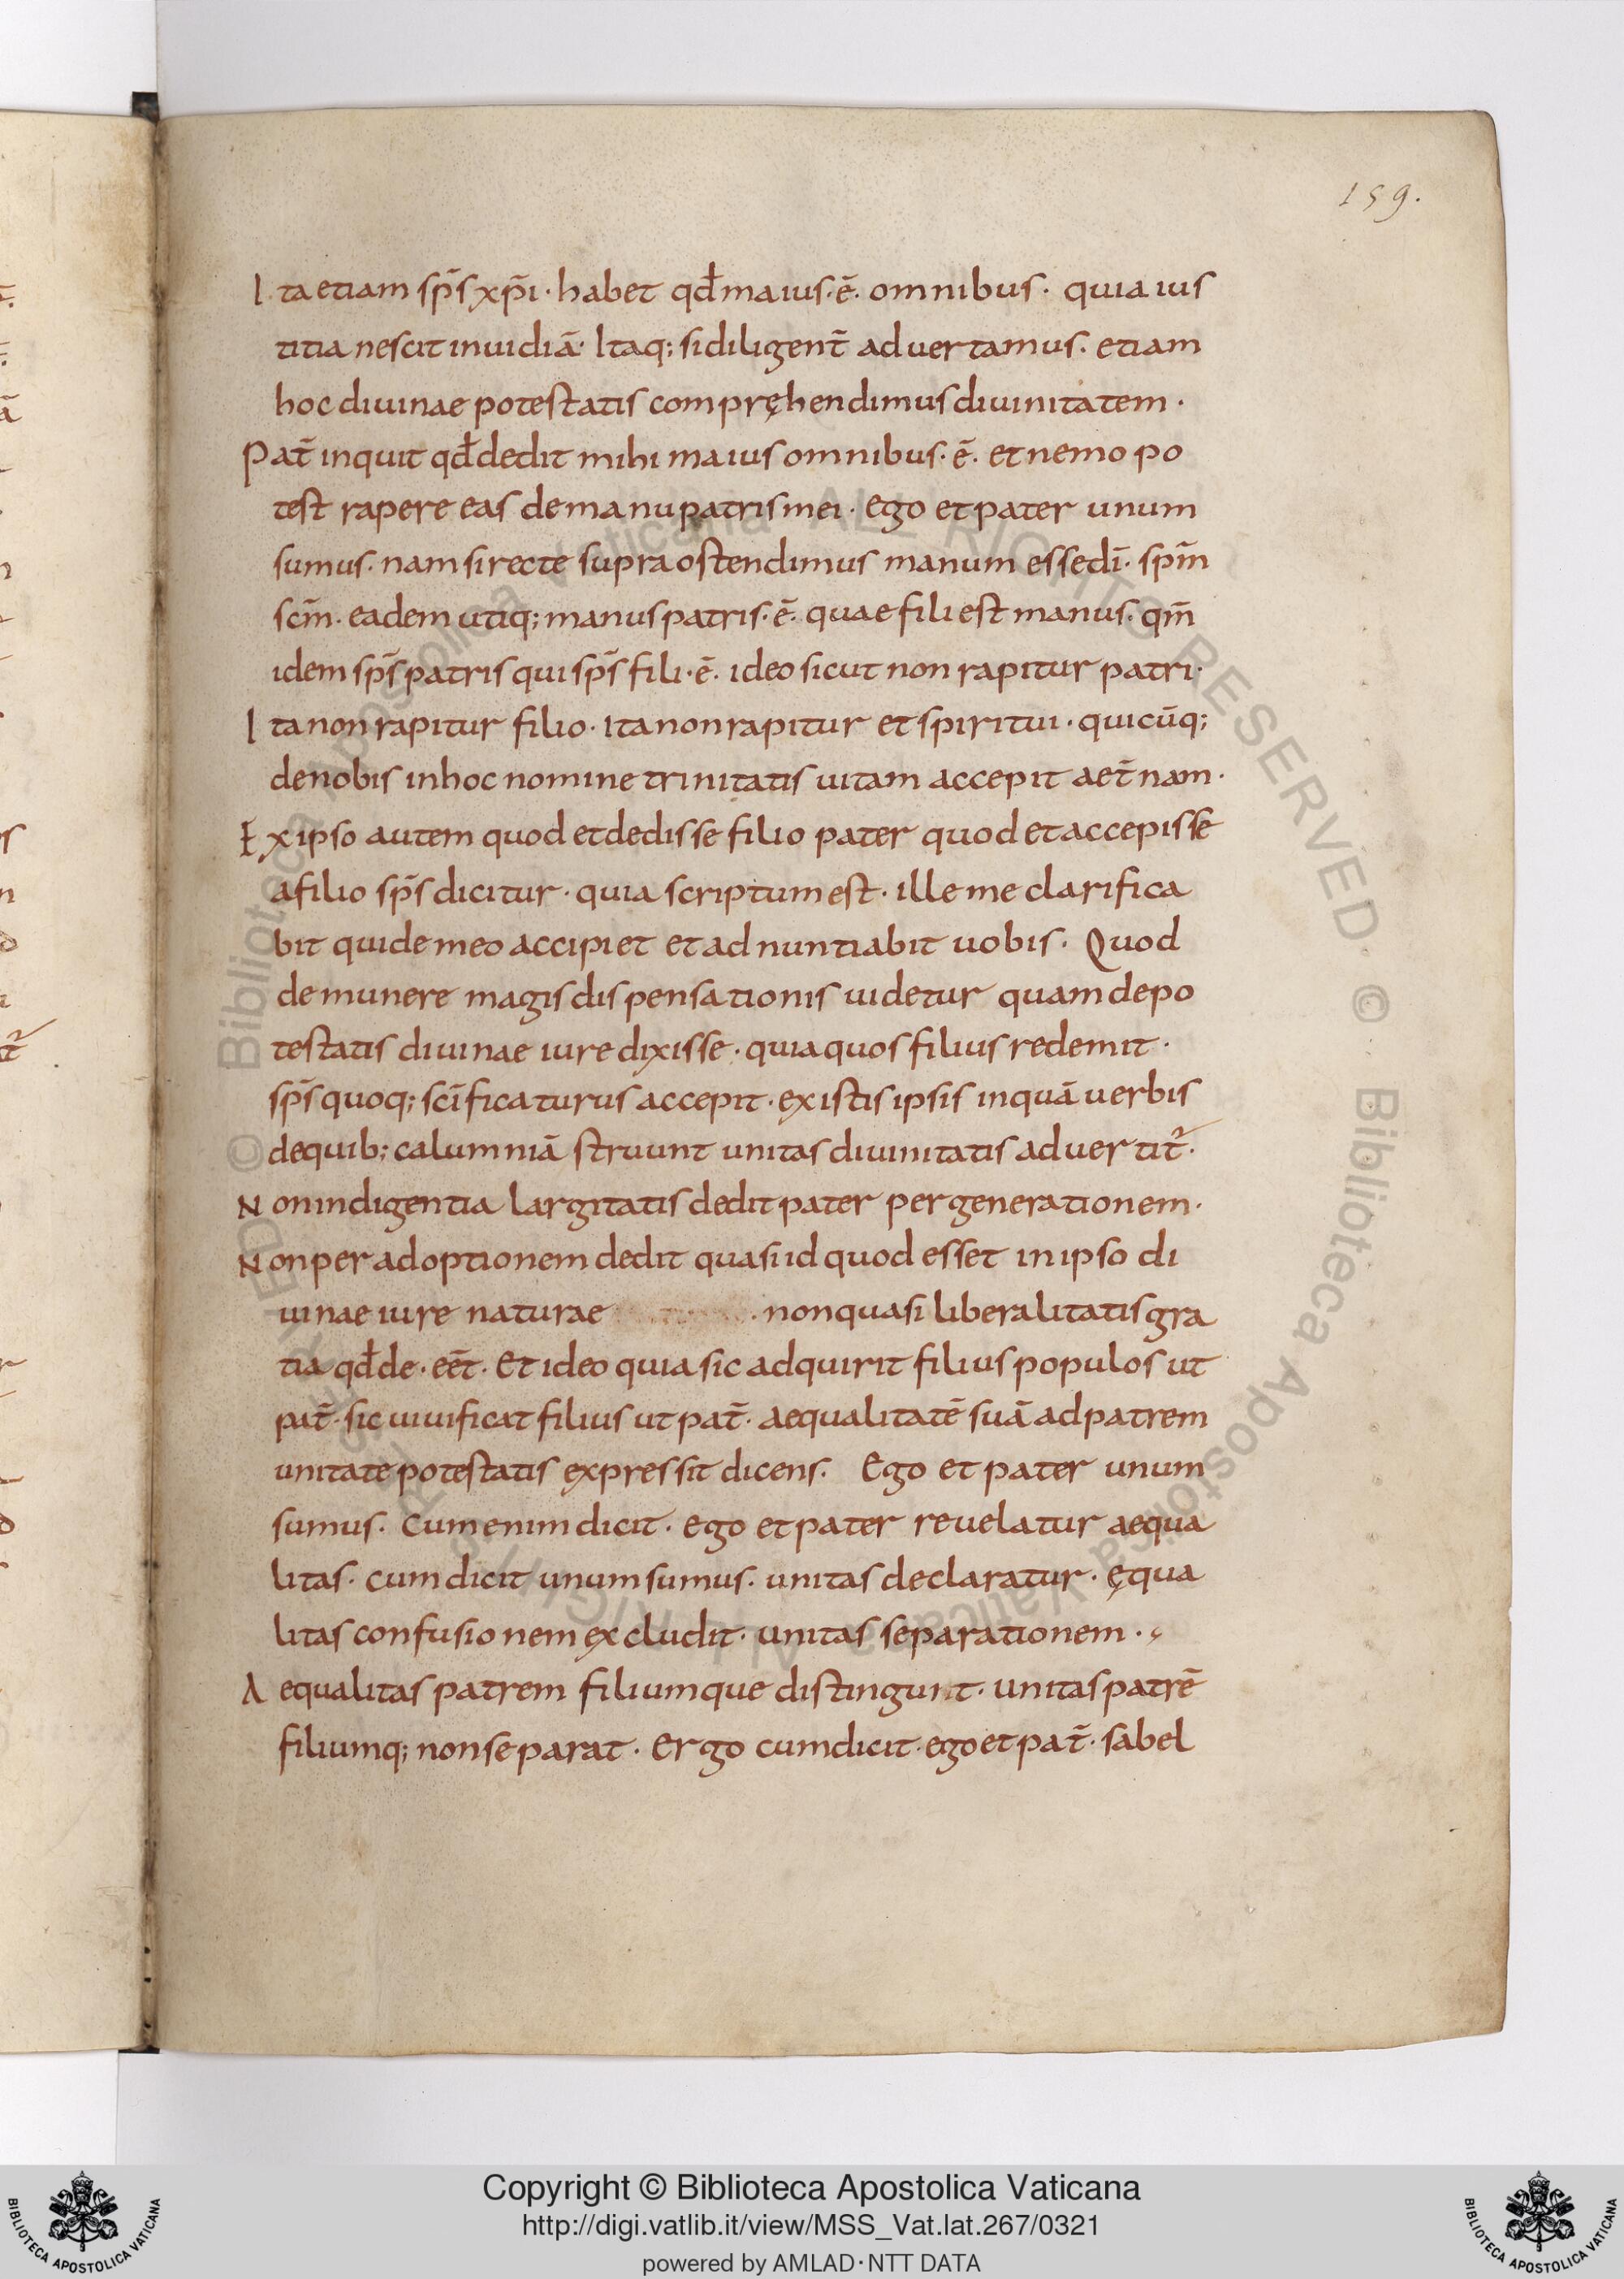 159.
Ita etiam sp̄s xp̄i · habet qđ maius · ē · omnibus · quia ius
titia nescit inuidiā · Itaq; si diligent̄ aduertamus · etiam
hoc diuinae potestatis compręhendimus diuinitatem ·
Pat̄ inquit qđ dedit mihi maius omnibus · ē · et nemo po
test rapere eas de manu patris mei · Ego et pater unum
sumus · nam si recte supra ostendimus manum esse dī · sp̄m
sc̄m · eadem utiq; manus patris · ē · quae fili est manus · qm̄
idem sp̄s patris qui sp̄s fili · ē · ideo sicut non rapitur patri ·
Ita non rapitur filio · ita non rapitur et spiritui · quicūq;
de nobis in hoc nomine trinitatis uitam accepit aet̄nam ·
Ex ipso autem quod et dedisse filio pater quod et accepisse
a filio sp̄s dicitur · quia scriptum est · ille me clarifica
bit qui de meo accipiet et adnuntiabit uobis · Quod
de munere magis dispensationis uidetur quam de po
testatis diuinae iure dixisse · quia quos filius redemit ·
sp̄s quoq; sc̄ificaturus accepit · ex istis ipsis inquā uerbis
de quib; calumniā struunt unitas diuinitatis aduertitᷣ ·
Non indigentia largitatis dedit pater per generationem ·
Non per adoptionem dedit quasi id quod esset in ipso di
uinae iure naturae · non quasi liberalitatis gra
tia qđ de · eēt · Et ideo quia sic adquirit filius populos ut
pat̄ · sic uiuificat filius ut pat̄ · aequalitatē suā ad patrem
unitate potestatis expressit dicens · Ego et pater unum
sumus · Cum enim dicit · ego et pater reuelatur aequa
litas · cum dicit unum sumus · unitas declaratur · ęqua
litas confusionem excludit · unitas separationem ·
Aequalitas patrem filiumque distingunt · unitas patrē
filiumq; non separat · Ergo cum dicit · ego et pat̄ · sabel
Copyright © Biblioteca Apostolica Vaticana
http://digi.vatlib.it/view/MSS_Vat.lat.267/0321
powered by AMLAD · NTT DATA